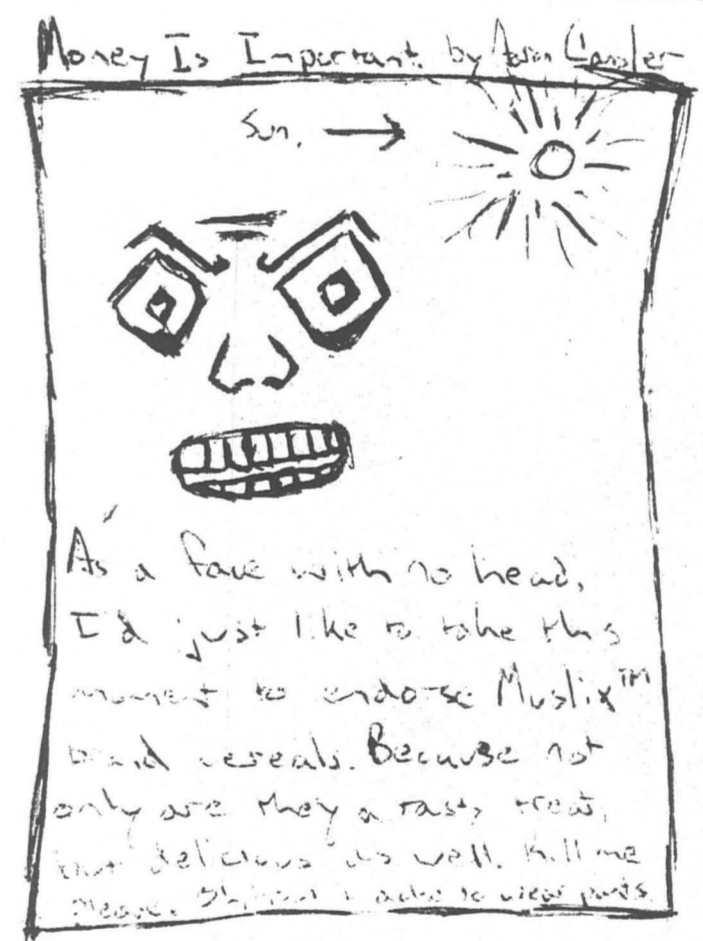 Money Is Important by Aaron Cansler
Sun.
As a face with no head,
I'd just like to take this
moment to endorse Muslix™
brand cereals. Because not
only are they a tasty treat,
but delicious as well. Kill me
Please. I to wear pants